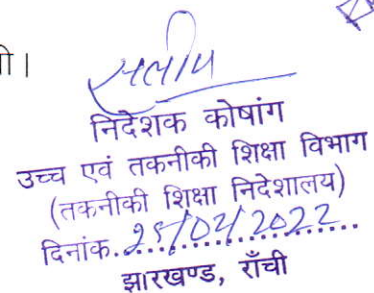 ी।
निदेशक कोषांग
उच्च एवं तकनीकी शिक्षा विभाग
(तकनीकी शिक्षा निदेशालय)
दिनांक..25/02/2022
झारखण्ड, राँची